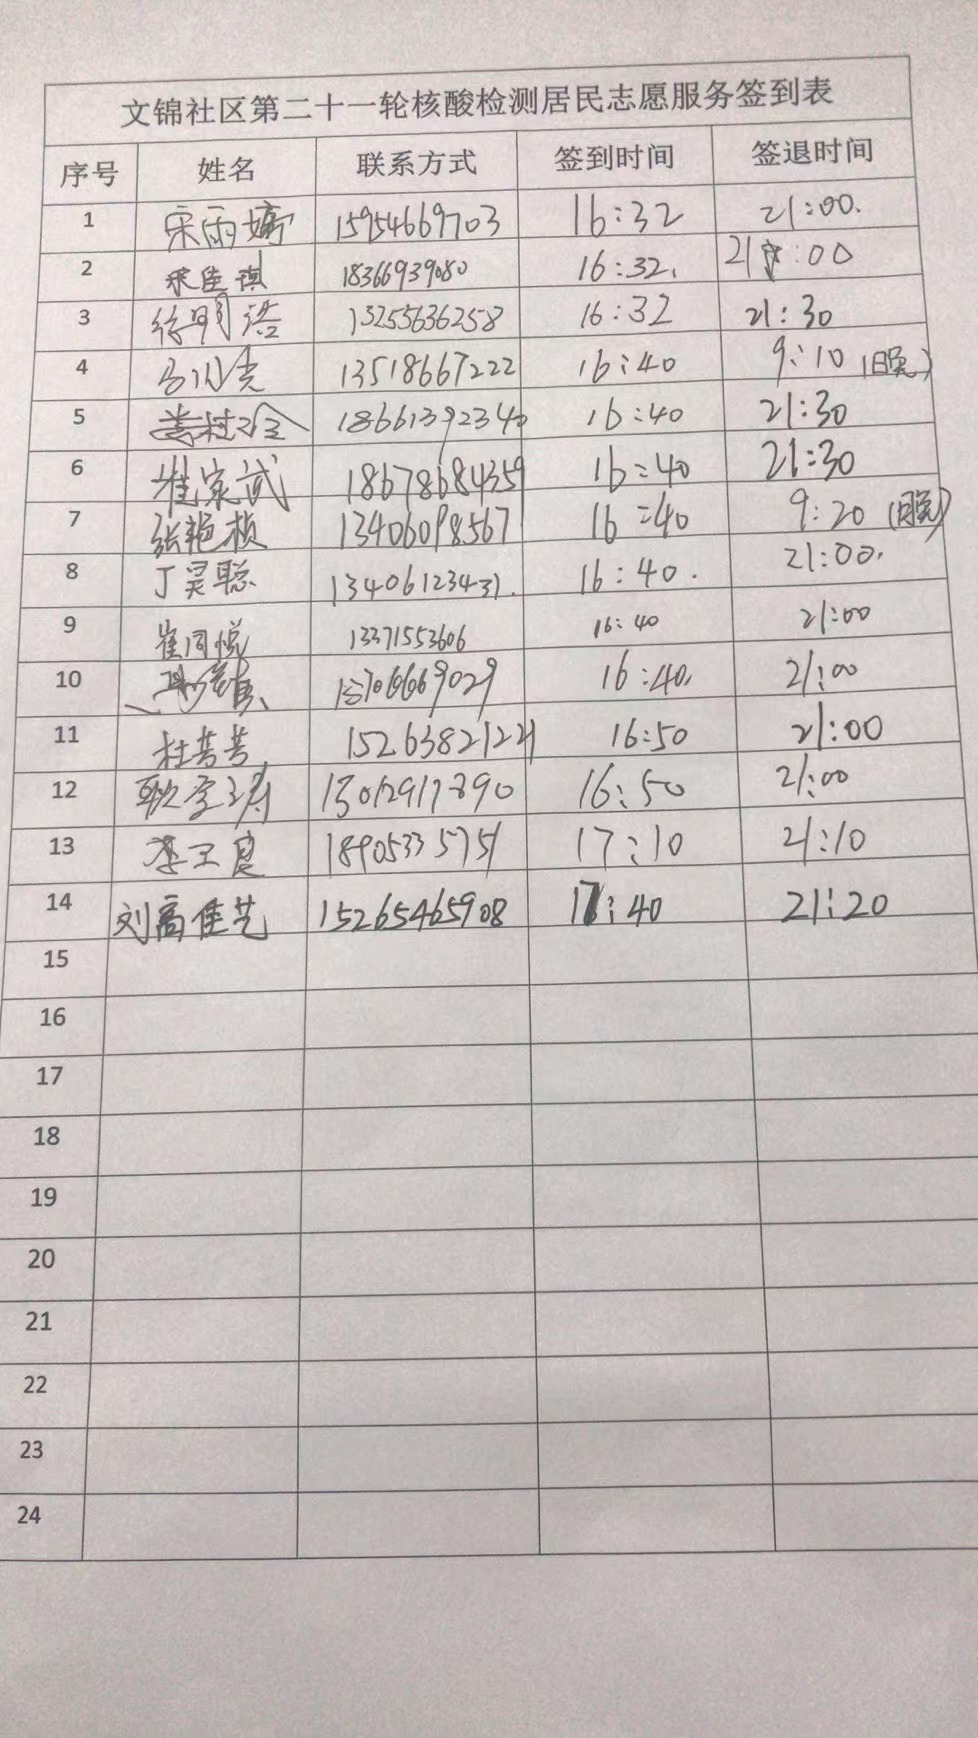 文锦社区第二十一轮核酸检测居民志愿服务签到表
序号 姓名 联系方式 签到时间 签退时间
1 宋雨婷 15954669703 16:32 21:00.
2 宋佳琪 18366939080 16:32. 21:00
3 徐明浩 13255636258 16:32 21:30
4 13518667222 16:40 9:10 (晚)
5 18661392340 16:40 21:30
6 崔家武 18678684359 16:40 21:30
7 张艳桢 13406098567 16:40 9:20 (晚)
8 丁昊聪 13406123431. 16:40. 21:00.
9 崔同悦 13371553606 16:40 21:00
10 16:40. 21:00
11 杜芳芳 15263821221 16:50 21:00
12 16:50 21:00
13 李玉良 18905335751 17:10 21:10
14 刘高佳艺 15265465908 17:40 21:20
15
16
17
18
19
20
21
22
23
24